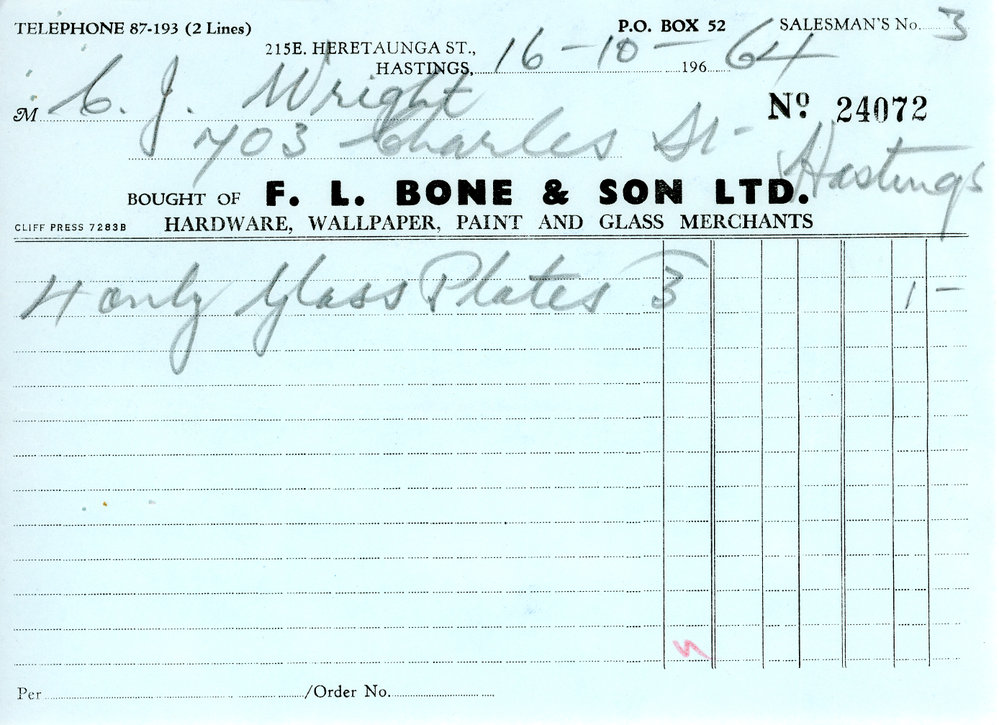 TELEPHONE 87-193 (2 Lines) P.O. BOX 52 SALESMAN'S No. 3
215E. HERETAUNGA ST.,
HASTINGS, 16-10- 196 64
M C. J. Wright Nº 24072
703 Charles St- Hastings
BOUGHT OF F. L. BONE & SON LTD.
CLIFF PRESS 7283B HARDWARE, WALLPAPER, PAINT AND GLASS MERCHANTS
4 only Glass Plates 3 1 -
Per /Order No.